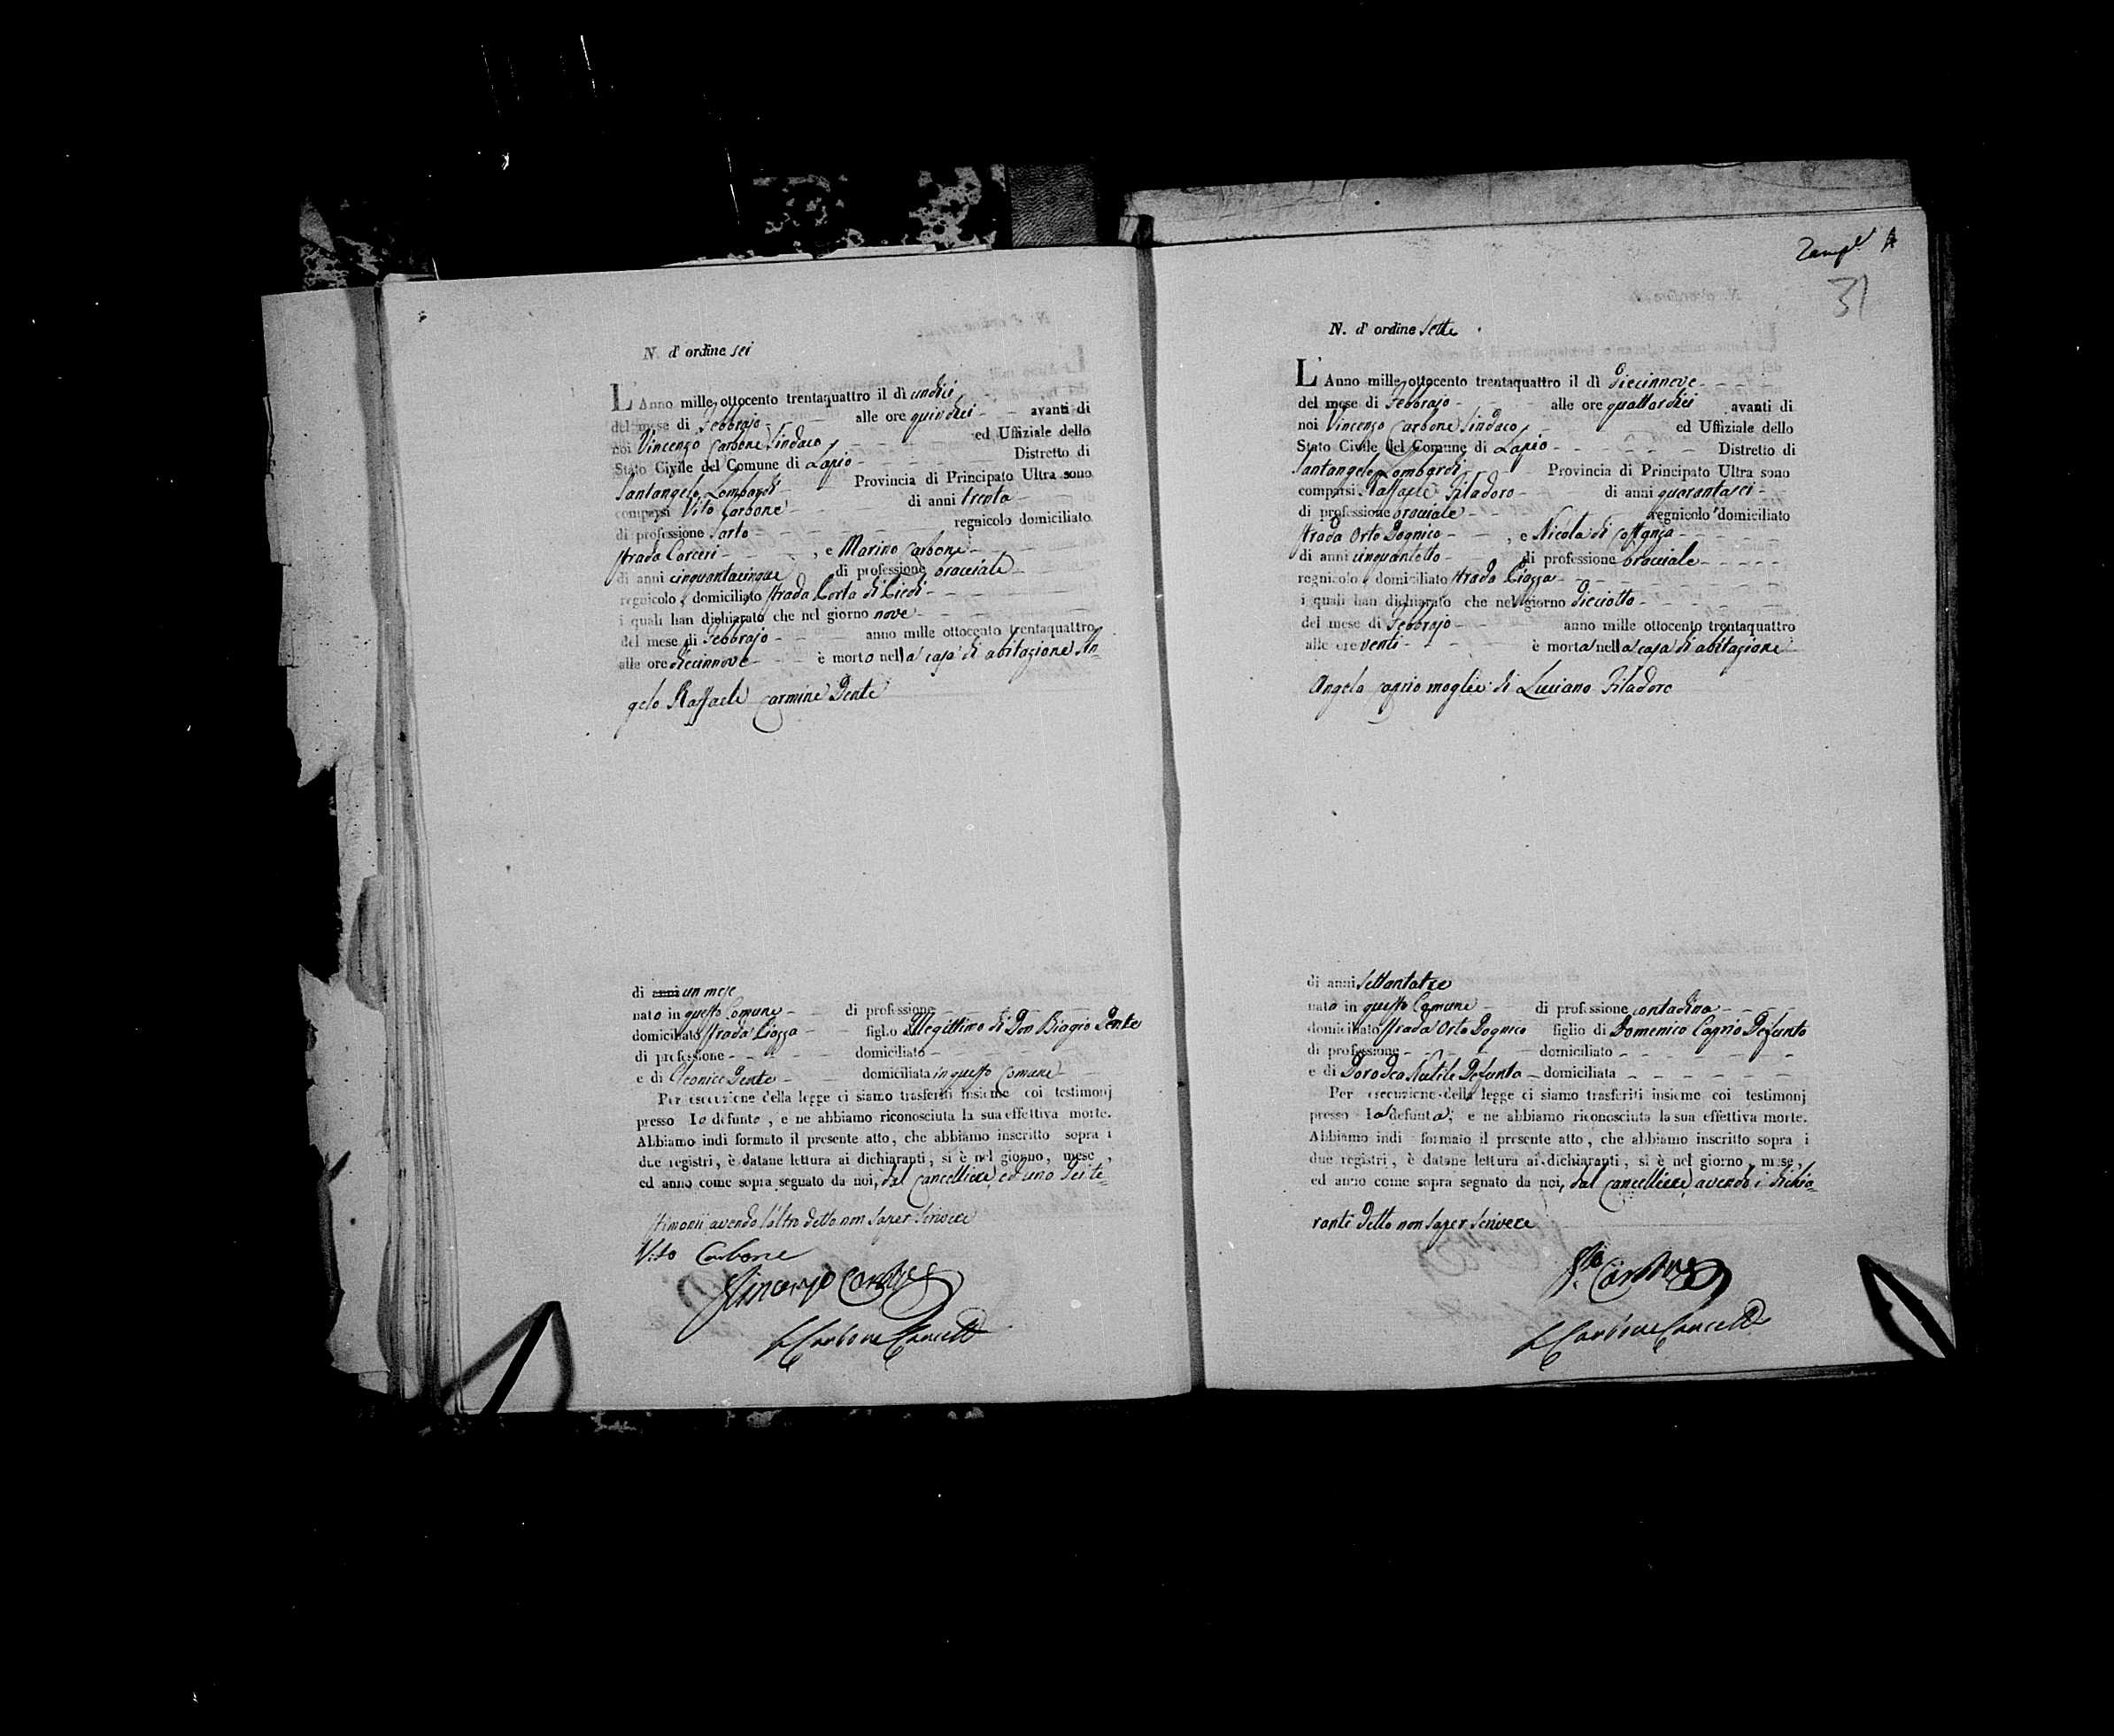 N. d' ordine sei
L' Anno mille ottocento trentaquattro il dì undici
del mese di Febbrajo alle ore quindici avanti di
noi Vincenzo Carbone Sindaco ed Uffiziale dello
Stato Civile del Comune di Lapio Distretto di
Santangelo Lombardi Provincia di Principato Ultra sono
comparsi Vito Carbone di anni trenta
di professione Sarto regnicolo domiciliato
strada Carceri , e Marino Carbone
di anni cinquantacinque di professione bracciale
regnicolo , domiciliato strada Porta di Piedi
i quali han dichiarato che nel giorno nove
del mese di Febbrajo anno mille ottocento trentaquattro
alle ore diecinnove è morto nella casa di abitazione An-
gelo Raffaele Carmine Dente
di anni un mese
nato in questo Comune di professione
domiciliato strada Piazza figlio illegittimo di Don Biagio Dente
di professione domiciliato
e di Cleonice Dente domiciliata in questo Comune
Per esecuzione della legge ci siamo trasferiti insieme coi testimonj
presso lo defunto , e ne abbiamo riconosciuta la sua effettiva morte.
Abbiamo indi formato il presente atto , che abbiamo inscritto sopra i
due registri , è datane lettura ai dichiaranti , si è nel giorno , mese ,
ed anno come sopra segnato da noi, dal Cancelliere, ed uno dei te=
stimonii avendo l'altro detto non saper scrivere
Vito Carbone
Vincenzo Carbone
Carbone Cancell
Zampl
31
N. d' ordine Sette
L' Anno mille ottocento trentaquattro il dì diecinnove
del mese di Febbrajo alle ore quattordici avanti di
noi Vincenzo Carbone Sindaco ed Uffiziale dello
Stato Civile del Comune di Lapio Distretto di
Santangelo Lombardi Provincia di Principato Ultra sono
comparsi Raffaele Filadoro di anni quarantasei
di professione bracciale regnicolo domiciliato
strada Orto Dognico , e Nicola di Costanza
di anni cinquantotto di professione bracciale
regnicolo , domiciliato strada Piazza
i quali han dichiarato che nel giorno dieciotto
del mese di Febbrajo anno mille ottocento trentaquattro
alle ore venti è morta nella casa di abitazione
Angela Caprio moglie di Luciano Filadoro
di anni settantatre
nato in questo Comune di professione contadina
domiciliato strada Orto Dognico figlio di Domenico Caprio Defunto
di professione domiciliato
e di Dorodea Nutile Defunta domiciliata
Per esecuzione della legge ci siamo trasferiti insieme coi testimonj
presso la defunta ; e ne abbiamo riconosciuta la sua effettiva morte.
Abbiamo indi formato il presente atto , che abbiamo inscritto sopra i
due registri , è datane lettura ai dichiaranti , si è nel giorno , mese ,
ed anno come sopra segnato da noi, dal Cancelliere, avendo i dichia=
ranti detto non saper scrivere
Carbone
Carbone Cancell